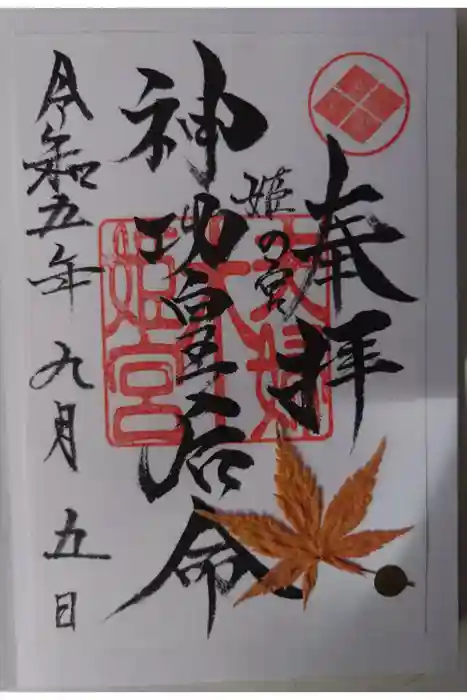 奉拝
姫の宮
神功皇后命
令和五年九月五日
姫宮